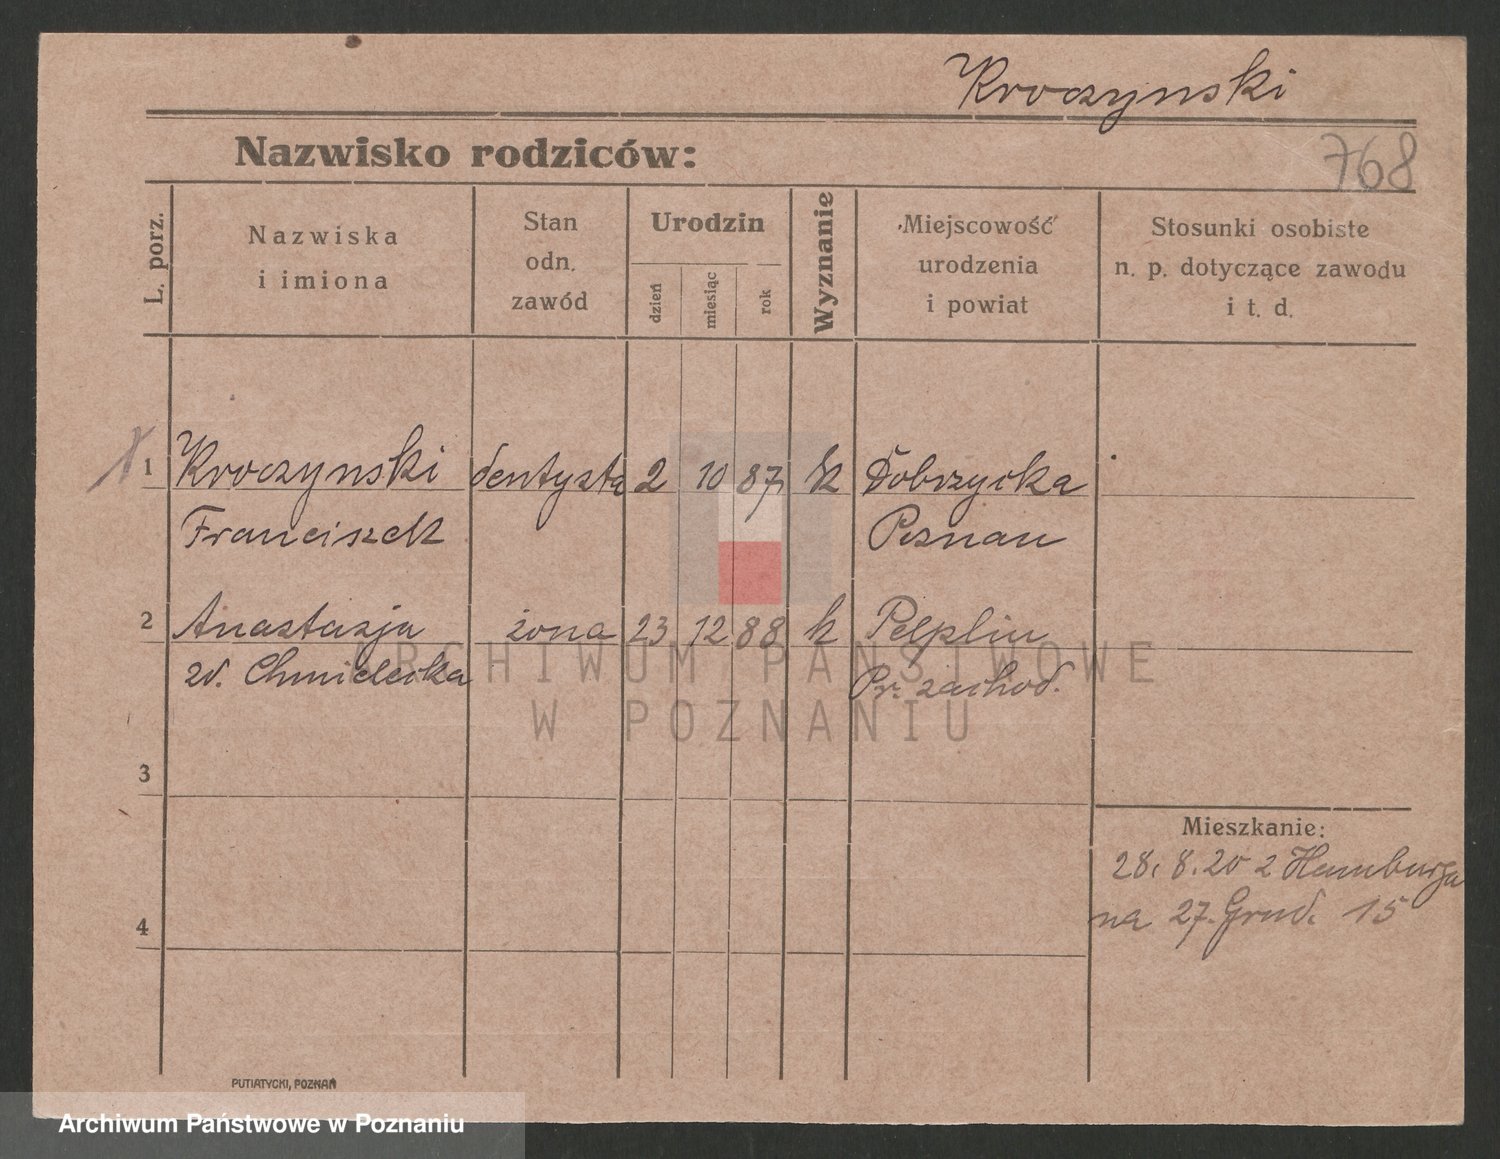 Kroczynski
768
Nazwisko rodziców:
L. porz.
Nazwiska
i imiona
Stan
odn.
zawód
Urodzin
dzień
miesiąc
rok
Wyznanie
Miejscowość
urodzenia
i powiat
Stosunki osobiste
n. p. dotyczące zawodu
i t. d.
1 Kroczynski dentysta 2 10 87 k Dobrzycka
Franciszek Poznan
2 Anastazja żona 23 12 88 k Pelplin
zd. Chmielecka Pr. zachod.
ARCHIWUM PAŃSTWOWE
W POZNANIU
3
Mieszkanie:
28. 8. 20 z Hamburga
na 27. Grud. 15
4
PUTIATYCKI, POZNAŃ
Archiwum Państwowe w Poznaniu